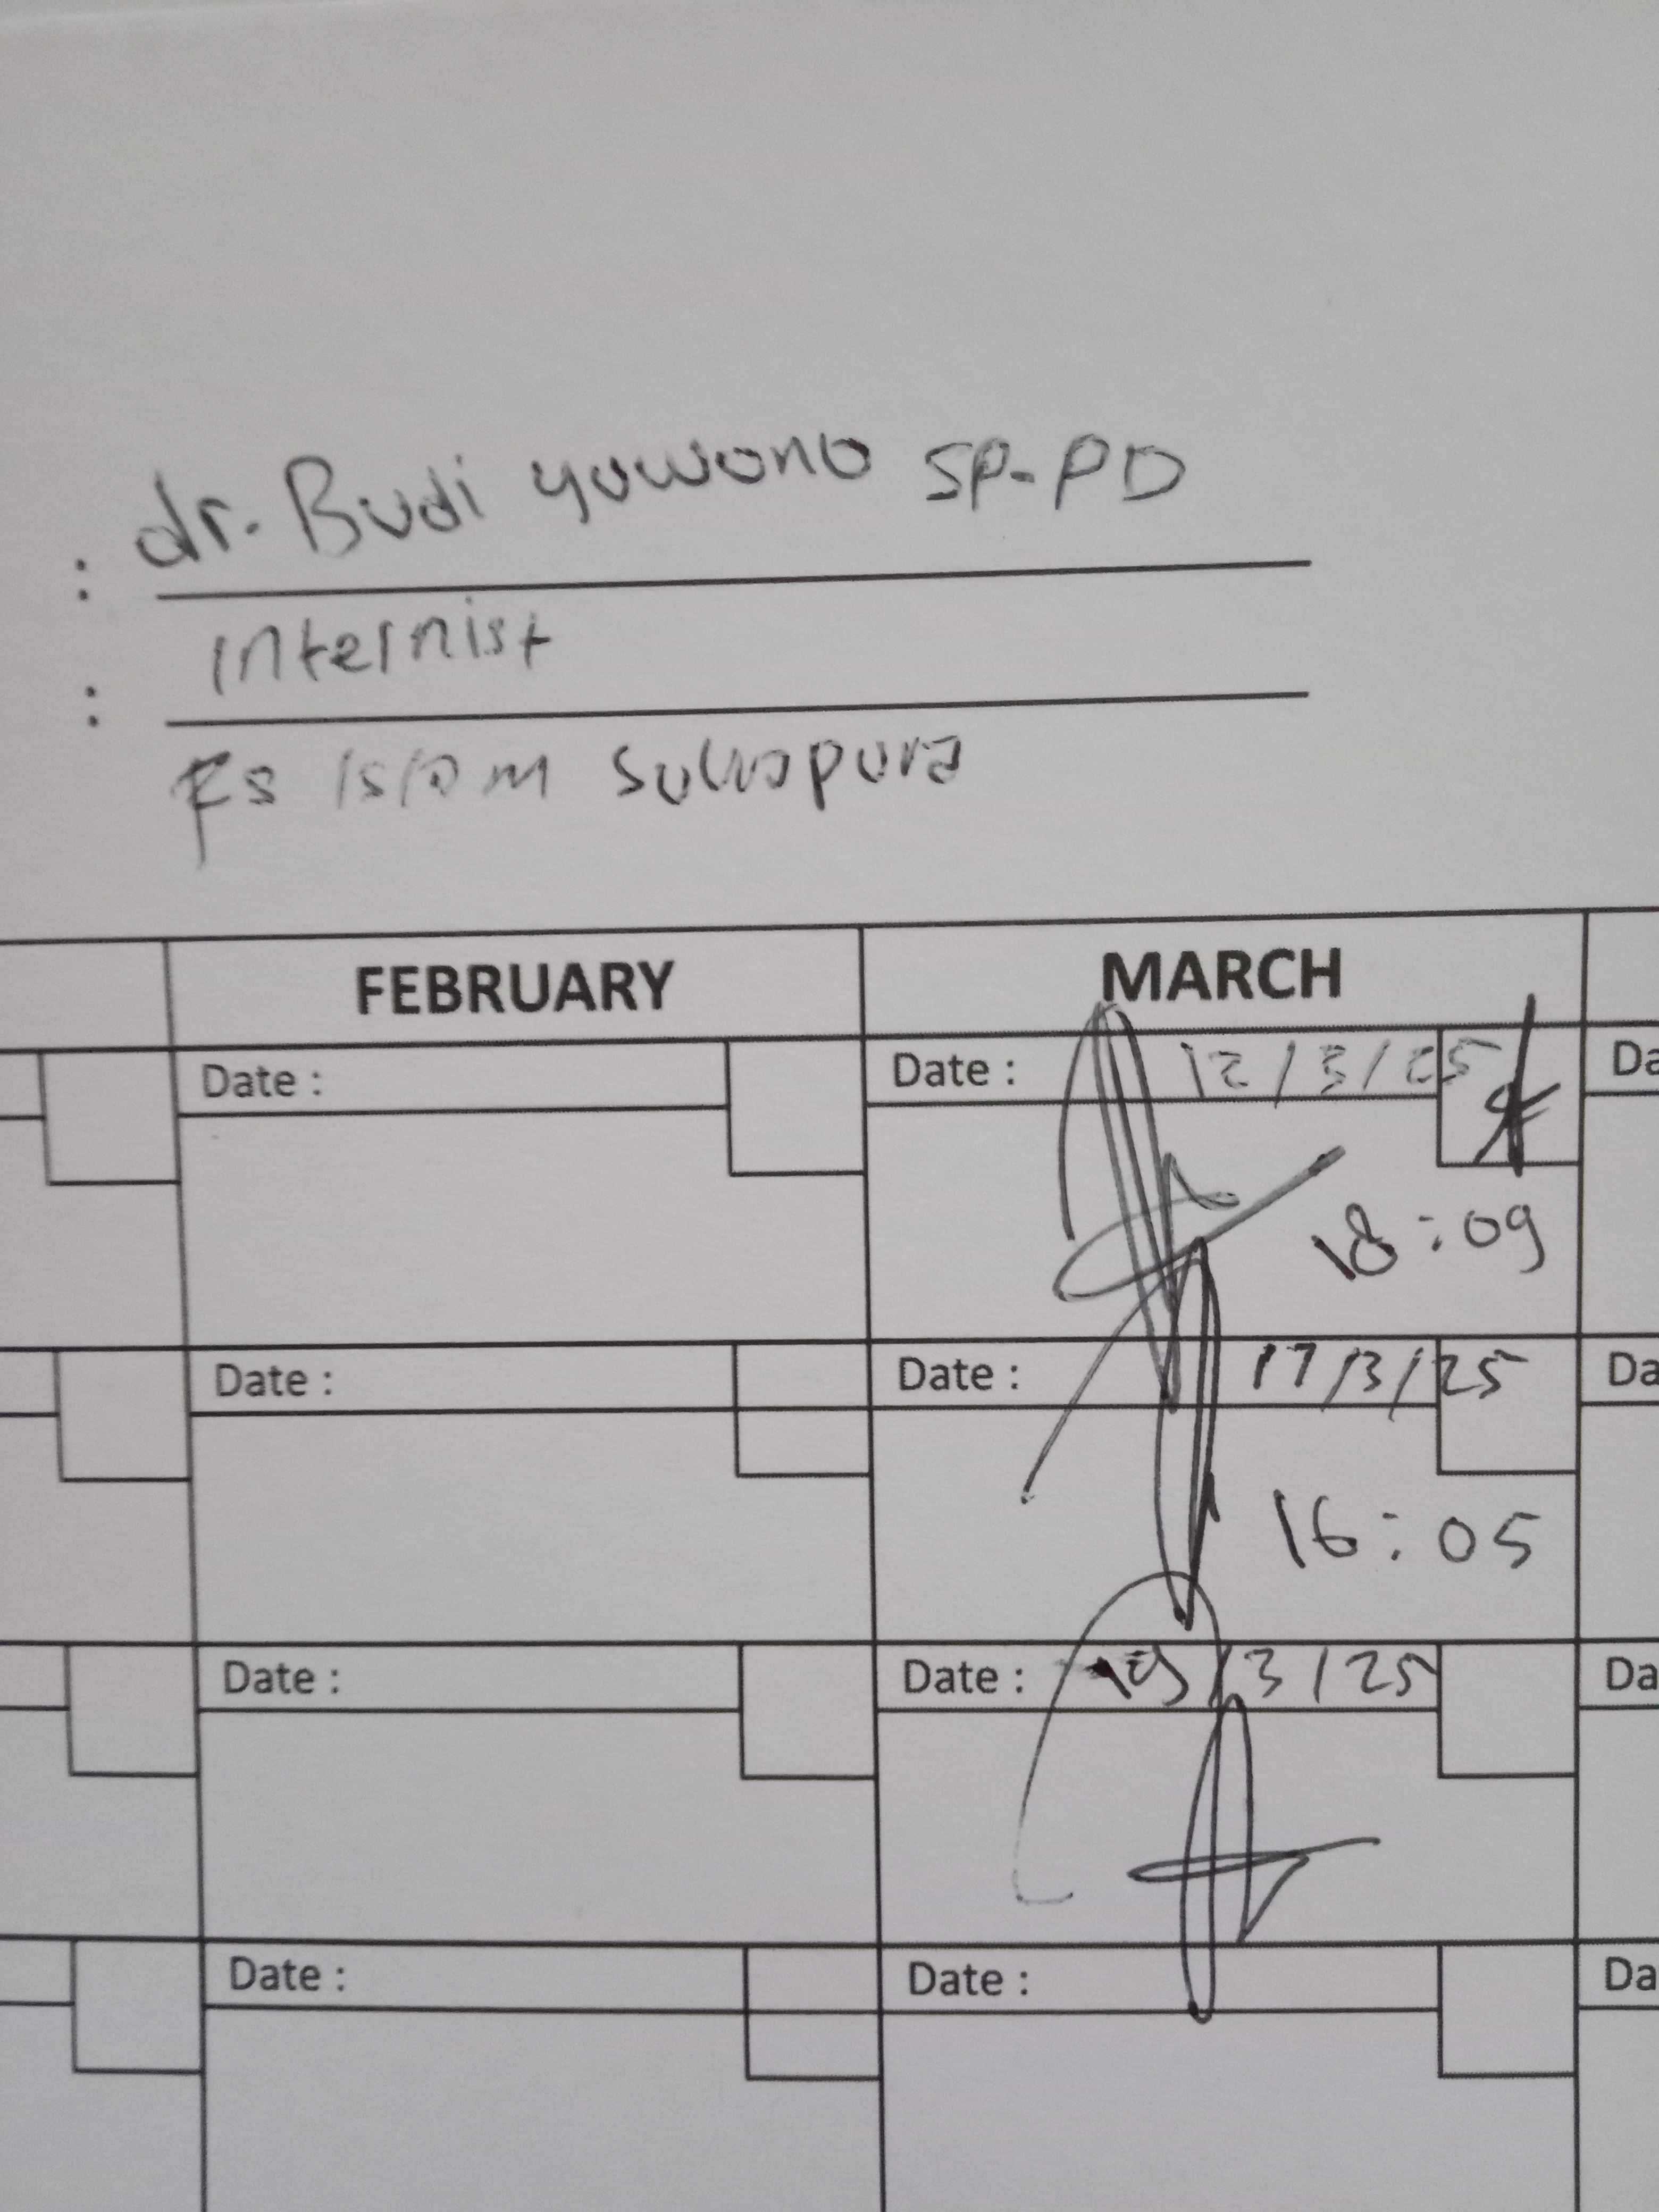 : dr. Budi yuwono SP-PD
: Internist
Rs Islam Sukapura
FEBRUARY MARCH
Date : Date : 12/3/25 Da
18:09
Date : Date : 17/3/25 Da
16:05
Date : Date : 19/3/25 Da
Date : Date : Da